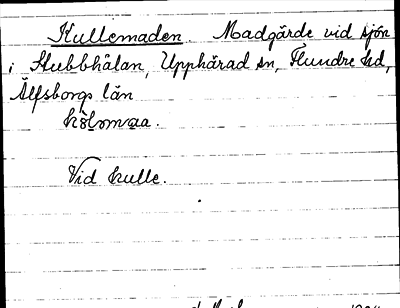 Kullemaden. Madgärde vid sjön
i Stubbhålan, Upphärad sn, Flundre hd,
Älfsborgs län
kö̀lømaa.
Vid kulle.